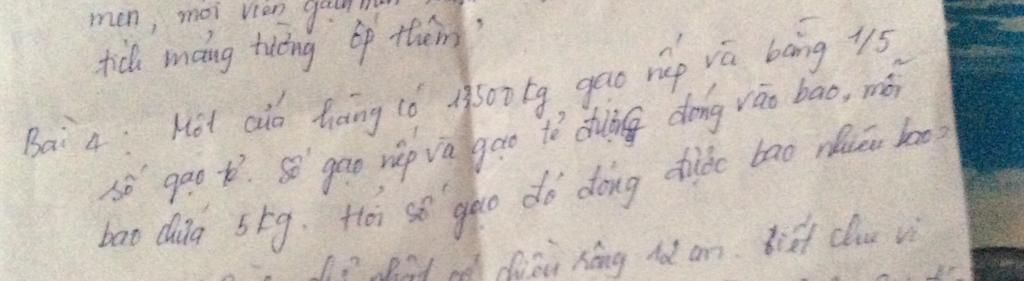 men, mỗi viên gạch
tích mảng tường ốp thêm?
Bài 4: Một cửa hàng có 13500 kg gạo nếp và bằng 1/5
số gạo tẻ. Số gạo nếp và gạo tẻ được đóng vào bao, mỗi
bao chứa 5 kg. Hỏi số gạo đó đóng được bao nhiêu bao?
chữ nhật có chiều rộng 12 cm. Biết chu vi